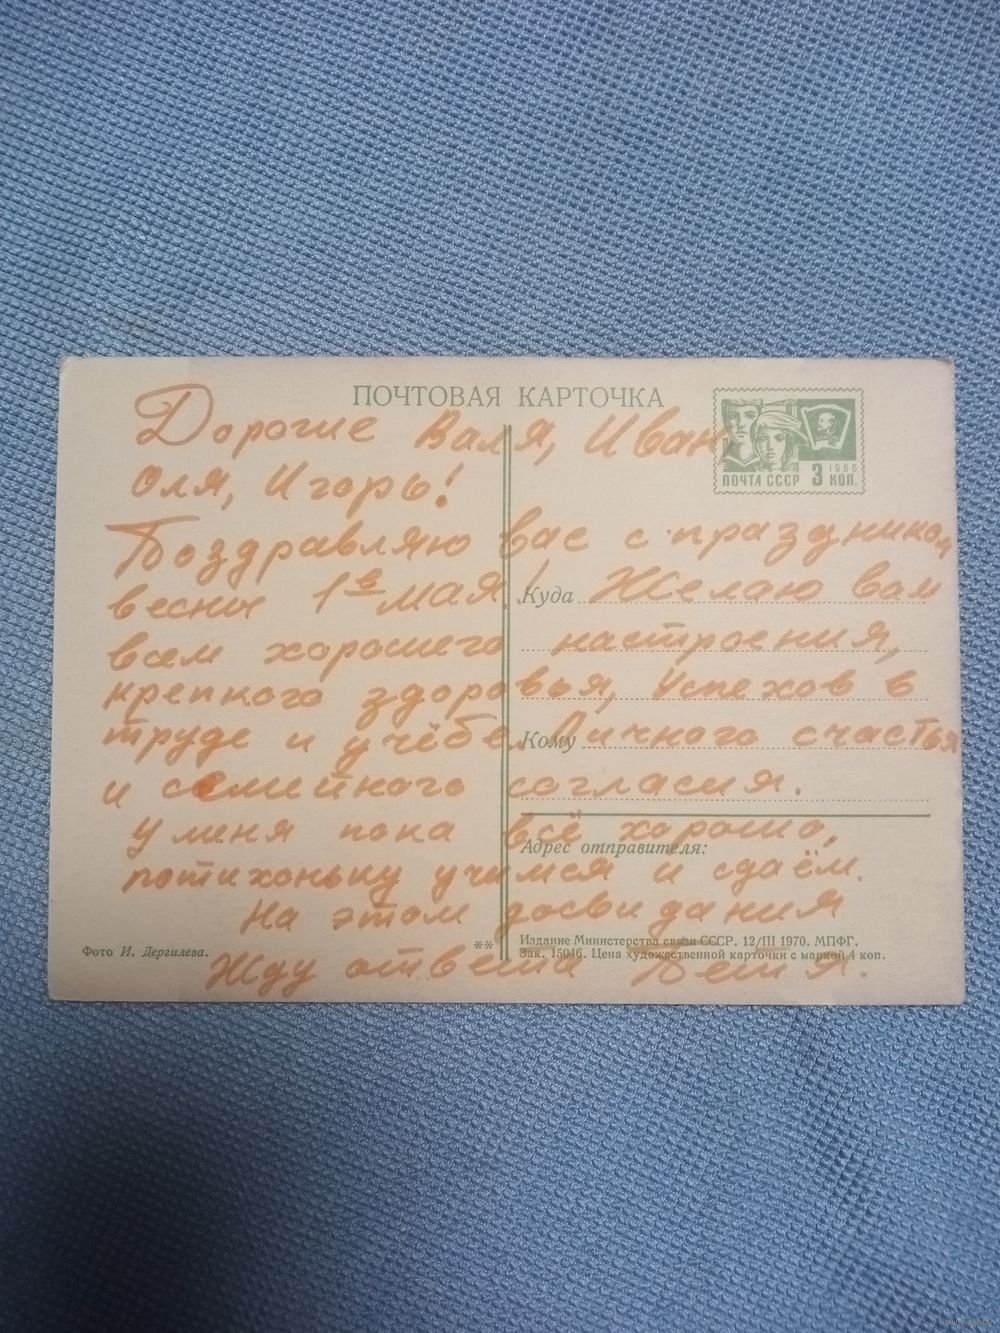 ПОЧТОВАЯ КАРТОЧКА
1966
ПОЧТА СССР 3 КОП.
Дорогие Валя, Иван
Оля, Игорь!
Поздравляю вас с праздником
весны 1е мая! Желаю вам
всем хорошего настроения,
крепкого здоровья, успехов в
труде и учёбе. Личного счастья
и семейного согласия.
У меня пока всё хорошо,
потихоньку учимся и сдаём.
На этом досвидания
Жду ответа
Куда
Кому
Адрес отправителя:
Фото И. Дергилева.
**
Издание Министерства связи СССР. 12/III 1970. МПФГ.
Зак. 15046. Цена художественной карточки с маркой 4 коп.